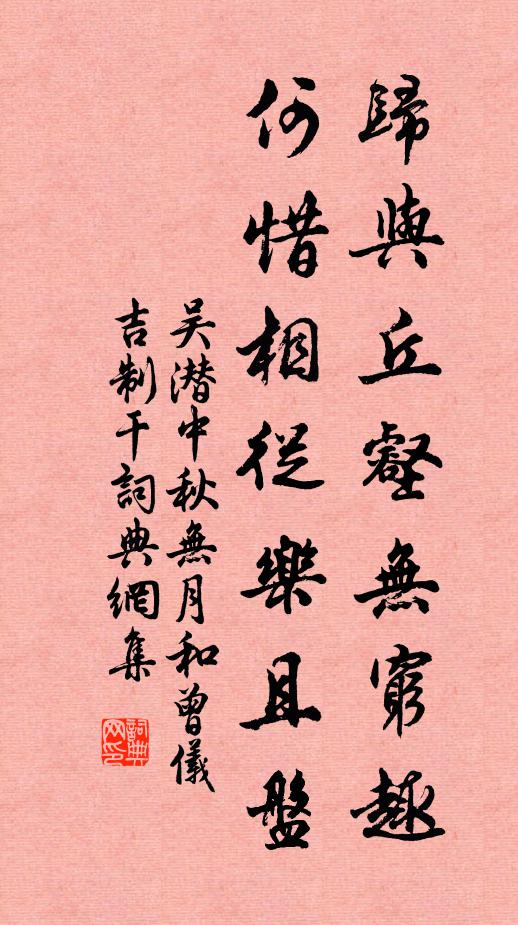 歸與丘壑無窮趣
何惜相從樂且盤
吴潜中秋無月和曾儀
吉制干詞典網集
詞典網印